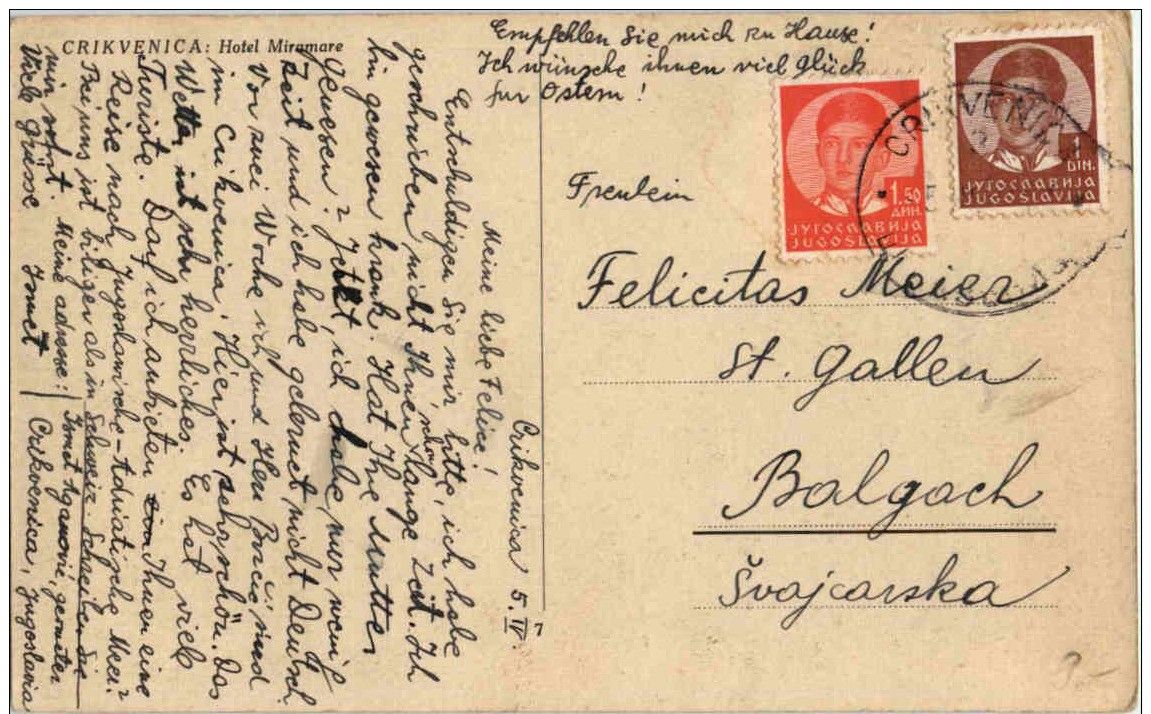 CRIKVENICA: Hotel Miramare
Empfehlen Sie mich zu Hause!
Ich wünsche ihnen viel glück
fur Ostern!
Crikvenica 5. IV. 7
Meine liebe Felice!
Entschuldigen Sie mir, bitte, ich habe
geschrieben nicht Ihnen schon lange Zeit. Ich
bin gewesen krank. Hat Ihre Mutter
gewesen? Jetzt, ich habe nur wenig
Zeit und ich habe gelernet nicht Deutsch.
Vor zwei Woche ich und Herr sind
im Crikvenica. Hier ist sehr schön. Das
Wetter ist sehr herrliches. Es hat viele
Turiste. Darf ich anbieten Ihnen eine
Reise nach Jugoslawische-Adriatische Meer?
Bei uns ist biliger als in Schweiz. Schreiben Sie
mir sofort. Meine adresse:
Viele Grüsse Ismet
Ismet
Crikvenica, Jugoslavia
Freulein
Felicitas Meier
St. Gallen
Balgach
Švajcarska
1.50
ДИН.
ЈУГОСЛАВИЈА
JUGOSLAVIJA
1
DIN.
ЈУГОСЛАВИЈА
JUGOSLAVIJA
CRIKVENICA